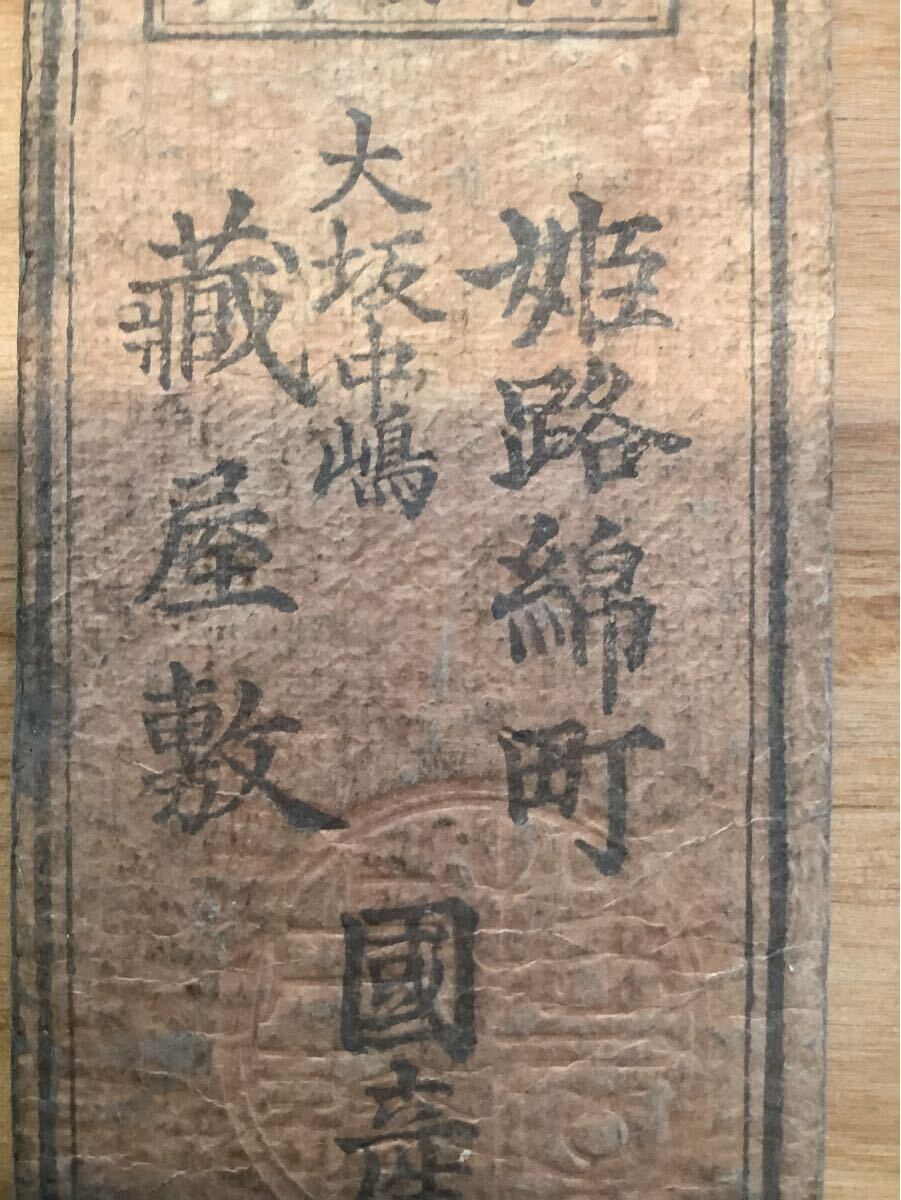 姫路綿町
大坂中嶋
藏屋敷
國産